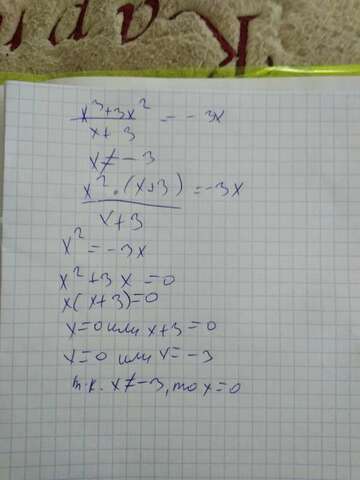 x³+3x²/x+3 = -3x
x≠-3
x²·(x+3)/x+3 = -3x
x² = -3x
x²+3x=0
x(x+3)=0
x=0 или x+3=0
x=0 или x=-3
т.к. x≠-3, то x=0